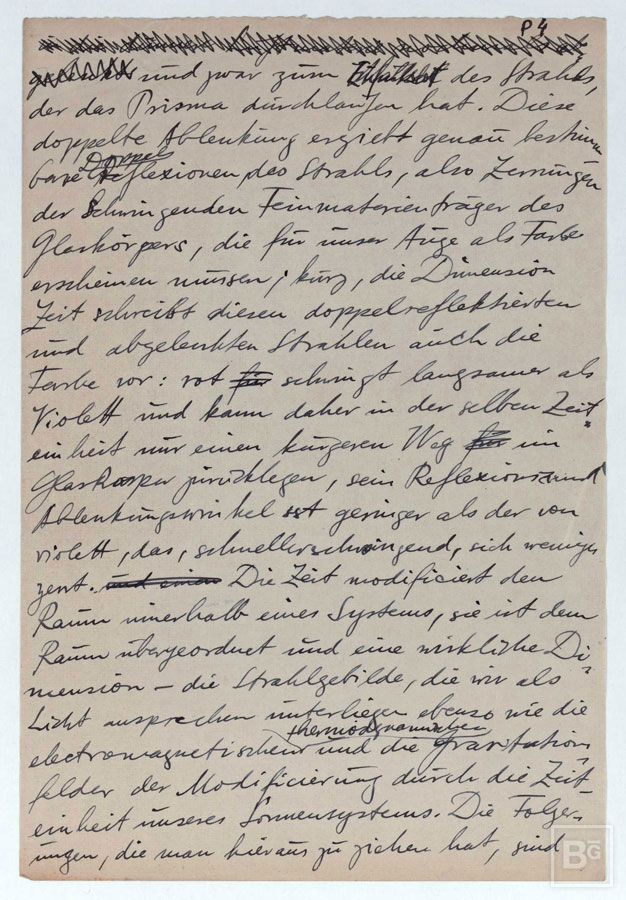 P 4
und zwar zum des Strahls,
der das Prisma durchlaufen hat. Diese
doppelte Ablenkung ergiebt genau bestimm
Doppel
bare reflexionen des Strahls, also Zerrungen
der Schwingenden Feinmaterienträger des
Glaskörpers, die für unser Auge als Farbe
erscheinen müssen; kurz, die Dimension
Zeit schreibt diesen doppelreflektierten
und abgelenkten Strahlen auch die
Farbe vor: rot für schwingt langsamer als
Violett und kann daher in der selben Zeit=
einheit nur einen kürzeren Weg für im
Glaskörper zurücklegen, sein Reflexions und
Ablenkungswinkel ist geringer als der von
violett, das, schnellerschwingend, sich weniger
zerrt. und einen Die Zeit modificiert den
Raum innerhalb eines Systems, sie ist dem
Raum übergeordnet und eine wirkliche Di=
mension – die Strahlgebilde, die wir als
Licht ansprechen unterliegen ebenso wie die
thermodynamischen
electromagnetischen und die Gravitations
felder der Modificierung durch die Zeit=
einheit unseres Sonnensystems. Die Folger=
ungen, die man hieraus zu ziehen hat, sind
BG